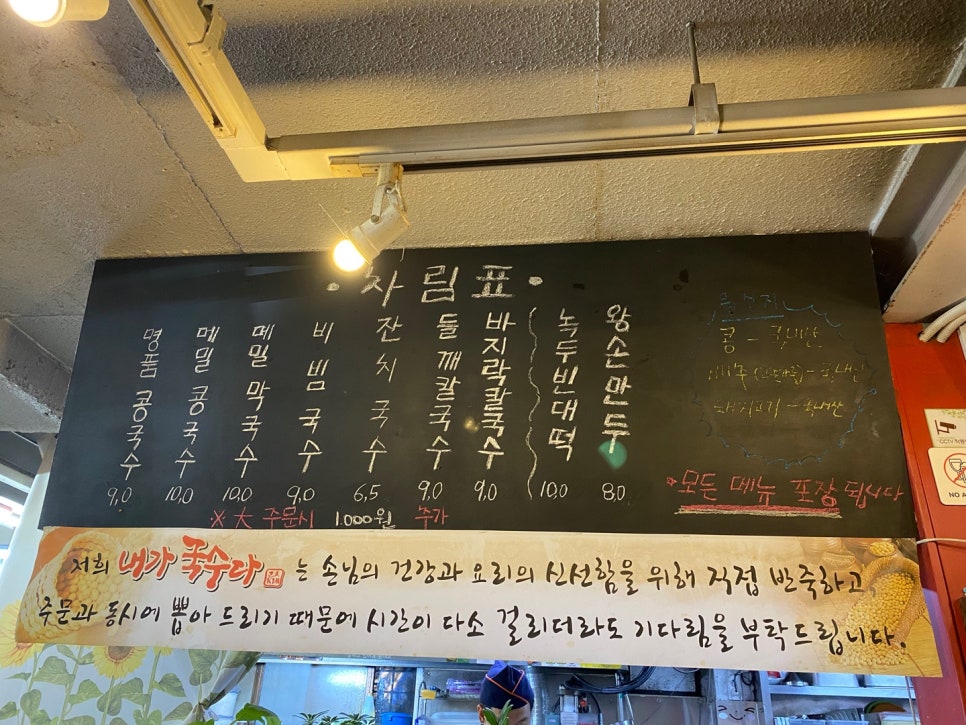 · 차 림 표 ·
명품 콩국수 9,0
메밀 콩국수 10,0
메밀 막국수 10,0
비빔국수 9,0
잔치국수 6,5
들깨칼국수 9,0
바지락칼국수 9,0
녹두빈대떡 10,0
왕손만두 8,0
콩 - 국내산
- 국내산
돼지고기 - 국내산
※ 大 주문시 1,000원 추가
*모든 메뉴 포장 됩니다
저희 내가 국수다 는 손님의 건강과 요리의 신선함을 위해 직접 반죽하고,
주문과 동시에 뽑아 드리기 때문에 시간이 다소 걸리더라도 기다림을 부탁드립니다.
CCTV
NO